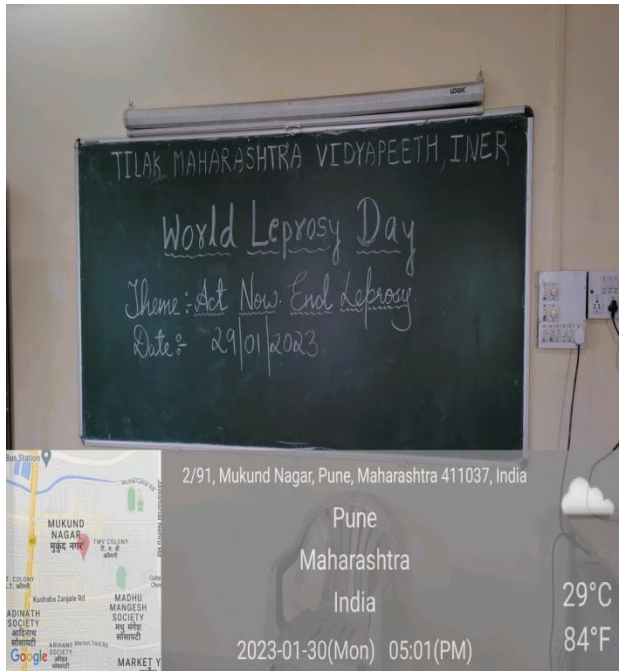 LOGIC
TILAK MAHARASHTRA VIDYAPEETH, INER
World Leprosy Day
Theme:- Act Now. End Leprosy
Date:- 29/01/2023
Bus Station
MUKUND
NAGAR
मुकुंद नगर
TMV COLONY
टि. म. वी.
कॉलनी
T. COLONY
.T. कॉलनी
Kushaba Zanjale Rd
ADINATH
SOCIETY
आदिनाथ
सोसायटी
MADHU
MANGESH
SOCIETY
मधु मंगेश
सोसायटी
ARIHANT
SOCIETY
Market Yard Rd
MARKET Y
Google
2/91, Mukund Nagar, Pune, Maharashtra 411037, India
Pune
Maharashtra
India
2023-01-30(Mon) 05:01(PM)
29°C
84°F